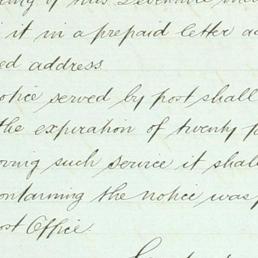 it in a prepaid letter ad
ed address.
otice served by post shall
the expiration of twenty f
oving such service it shall
ontaining the notice was p
ost Office.